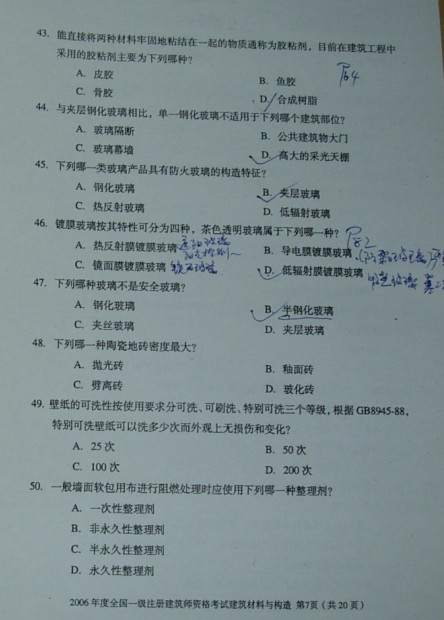 43. 能直接将两种材料牢固地粘结在一起的物质通称为胶粘剂，目前在建筑工程中
采用的胶粘剂主要为下列哪种？
A. 皮胶 B. 鱼胶
C. 骨胶 D. 合成树脂
44. 与夹层钢化玻璃相比，单一钢化玻璃不适用于下列哪个建筑部位？
A. 玻璃隔断 B. 公共建筑物大门
C. 玻璃幕墙 D. 高大的采光天棚
45. 下列哪一类玻璃产品具有防火玻璃的构造特征？
A. 钢化玻璃 B. 夹层玻璃
C. 热反射玻璃 D. 低辐射玻璃
46. 镀膜玻璃按其特性可分为四种，茶色透明玻璃属于下列哪一种？
A. 热反射膜镀膜玻璃 B. 导电膜镀膜玻璃
C. 镜面膜镀膜玻璃 D. 低辐射膜镀膜玻璃
47. 下列哪种玻璃不是安全玻璃？
A. 钢化玻璃 B. 半钢化玻璃
C. 夹丝玻璃 D. 夹层玻璃
48. 下列哪一种陶瓷地砖密度最大？
A. 抛光砖 B. 釉面砖
C. 劈离砖 D. 玻化砖
49. 壁纸的可洗性按使用要求分可洗、可刷洗、特别可洗三个等级，根据 GB8945-88，
特别可洗壁纸可以洗多少次而外观上无损伤和变化？
A. 25 次 B. 50 次
C. 100 次 D. 200 次
50. 一般墙面软包用布进行阻燃处理时应使用下列哪一种整理剂？
A. 一次性整理剂
B. 非永久性整理剂
C. 半永久性整理剂
D. 永久性整理剂
2006 年度全国一级注册建筑师资格考试建筑材料与构造 第7页（共 20 页）